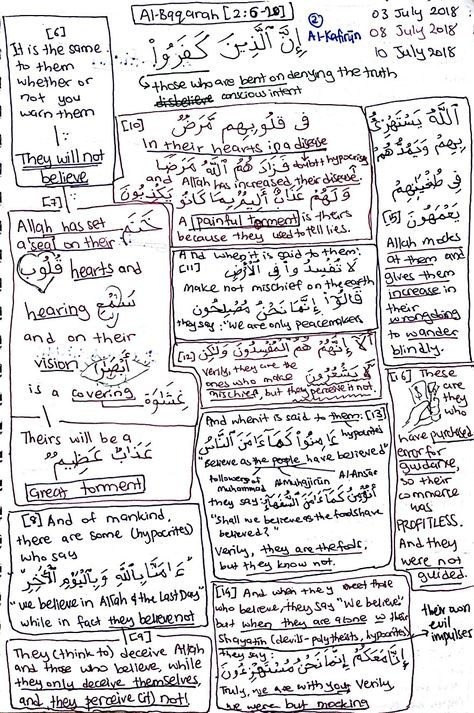 Al-Baqarah [2:6-20]
②
Al-Kafirūn
03 July 2018
08 July 2018
10 July 2018
إِنَّ الَّذِينَ كَفَرُوا
those who are bent on denying the truth
disbelieve conscious intent
[6]
It is the same
to them
whether or
not you
warn them
They will not
believe
[7]
Allah has set
a seal on their
خَتَمَ
قُلُوبِ
hearts and
hearing
سَمْعِ
and on their
vision
أَبْصَرِ
is a covering
غِشَاوَة
Theirs will be a
عَذَابٌ عَظِيمٌ
Great torment
[8] And of mankind,
there are some (hypocrites)
who say
ءَامَنَّا بِاللَّهِ وَبِالْيَوْمِ الْآخِرِ
"we believe in Allah & the Last Day"
while in fact they believe not
[9]
They (think to) deceive Allah
and those who believe, while
they only deceive themselves,
and they perceive (it) not!
[10]
فِي قُلُوبِهِم مَّرَضٌ
In their hearts is a disease
doubt hypocrisy
فَزَادَهُمُ اللَّهُ مَرَضًا
and
Allah has increased their disease.
وَلَهُمْ عَذَابٌ أَلِيمٌ بِمَا كَانُوا يَكْذِبُونَ
A painful torment is theirs
because they used to tell lies.
And when it is said to them:
[11]
لَا تُفْسِدُوا فِي الْأَرْضِ
make not mischief on the earth
قَالُوا إِنَّمَا نَحْنُ مُصْلِحُونَ
they say: "We are only peacemakers
[12]
أَلَا إِنَّهُمْ هُمُ الْمُفْسِدُونَ وَلَكِن
Verily, they are the
لَّا يَشْعُرُونَ
ones who make
mischief, but they perceive it not.
And when it is said to them: [13]
hypocrites
ءَامِنُوا كَمَا ءَامَنَ النَّاسُ
"Believe as the people have believed"
followers of
muhammad
Al-Muhajirūn
Al-Ansār
they say:
أَنُؤْمِنُ كَمَا ءَامَنَ السُّفَهَاءُ
"Shall we believe as the fools have
believed?"
Verily, they are the fools,
but they know not.
[14] And when they meet those
who believe, they say "We believe"
but when they are alone w their
Shayatin (devils - polytheists, hypocrites)
they say:
إِنَّا مَعَكُمْ إِنَّمَا نَحْنُ مُسْتَهْزِءُونَ
Truly, we are with you, Verily,
we were but mocking
their own
evil
impulses
اللَّهُ يَسْتَهْزِئُ
بِهِمْ وَيَمُدُّهُمْ
فِي طُغْيَانِهِمْ
يَعْمَهُونَ
[15]
Allah mocks
at them and
gives them
increase in
their
wrongdoing
to wander
blindly.
[16] These
are
they
who
have purchased
error for
guidance,
so their
commerce
was
PROFITLESS.
And they
were not
guided.